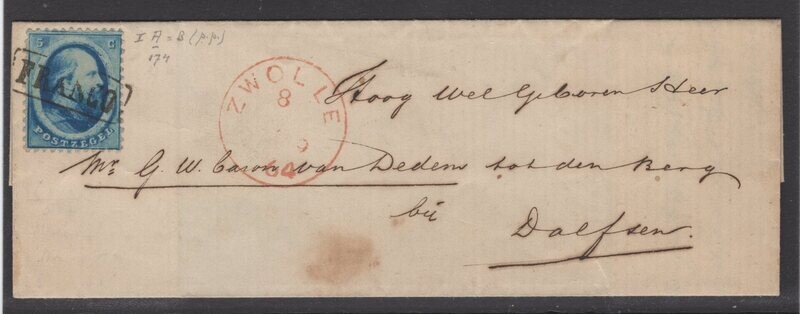 5 C
FRANCO
POSTZEGEL
I A = B (p.p.)
174
ZWOLLE
8
9
64
Hoog Wel Geboren Heer
Mr G. W. Baron van Dedem tot den Berg
bij
Dalfsen.